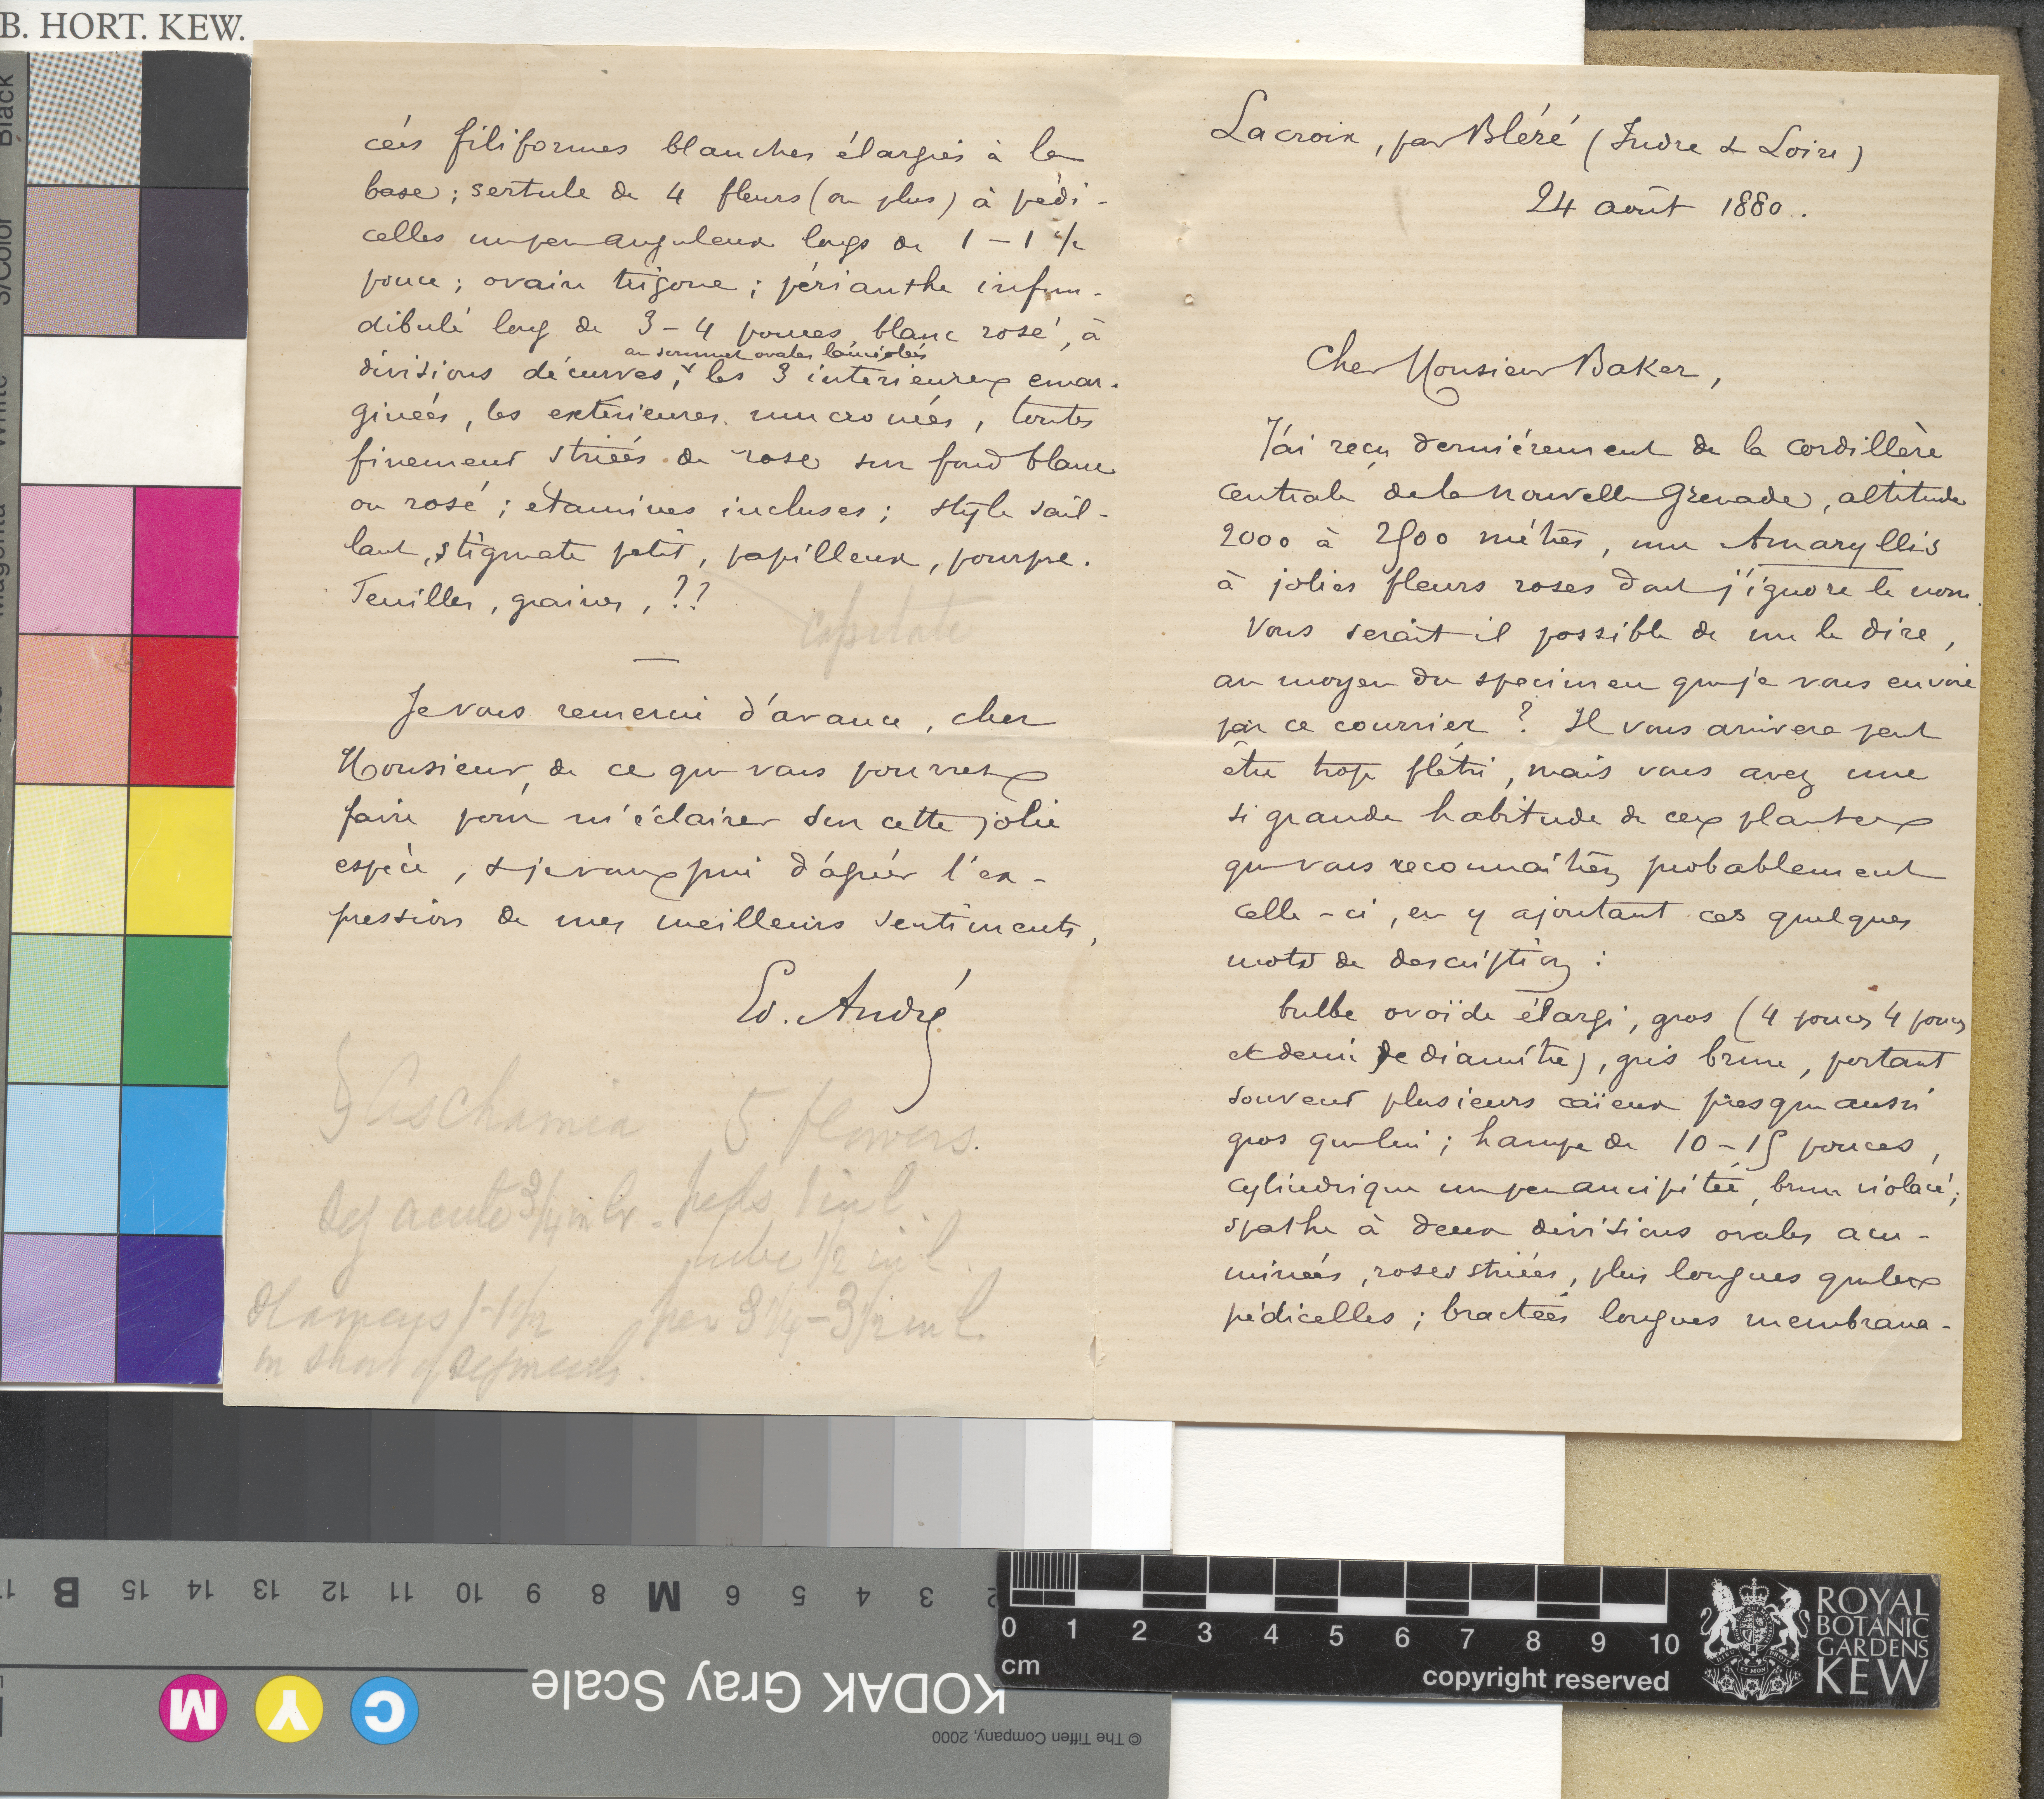 B. HORT. KEW.
Lacroix, par Bléré (Indre & Loire)
24 août 1880.
Cher Monsieur Baker,
J'ai reçu dernièrement de la cordillère
centrale de la Nouvelle Grenade, altitude
2000 à 2500 mètres, une Amaryllis
à jolies fleurs roses dont j'ignore le nom.
Vous serait-il possible de me le dire,
au moyen du specimen que je vous envoie
par ce courrier ? Il vous arrivera peut
être trop flétri, mais vous avez une
si grande habitude de ces plantes
que vous reconnaîtrez probablement
celle-ci, en y ajoutant ces quelques
mots de description :
bulbe ovoïde élargi, gros (4 pouces 4 pouces
et demi de diamètre), gris brun, portant
souvent plusieurs caïeux presque aussi
gros que lui ; hampe de 10-15 pouces,
cylindrique un peu ancipitée, brun violacé ;
spathe à deux divisions ovales acu-
minées, roses striées, plus longues que les
pédicelles ; bractées longues membrana-
cées filiformes blanches élargies à la
base ; sertule de 4 fleurs (ou plus) à pédi-
celles un peu anguleux longs de 1 - 1 ½
pouce ; ovaire trigone ; périanthe infun-
dibulé long de 3-4 pouces, blanc rosé, à
au sommet ovales lancéolées
divisions décurves, les 3 intérieures emar-
ginées, les extérieures mucronées, toutes
finement striées de rose sur fond blanc
ou rosé ; étamines incluses ; style sail-
lant, stigmate petit, papilleux, pourpre.
Feuilles, graines, ??
capitate
Je vous remercie d'avance, cher
Monsieur, de ce que vous pourrez
faire pour m'éclairer sur cette jolie
espèce, & je vous prie d'agréer l'ex-
pression de mes meilleurs sentiments,
Ed. André
§ Aschamia 5 flowers.
Seg acute 3/4 in br. peds 1 in l.
tube 1/2 in l.
stamens 1-1 1/2 per 3 1/4 - 3 1/2 in l.
in short of segments.
Black
3/Color
White
Magenta
B 15 14 13 12 11 10 9 8 M 6 5 4 3 2
KODAK Gray Scale
C Y M
© The Tiffen Company, 2000
0 1 2 3 4 5 6 7 8 9 10
cm
copyright reserved
ROYAL
BOTANIC
GARDENS
KEW